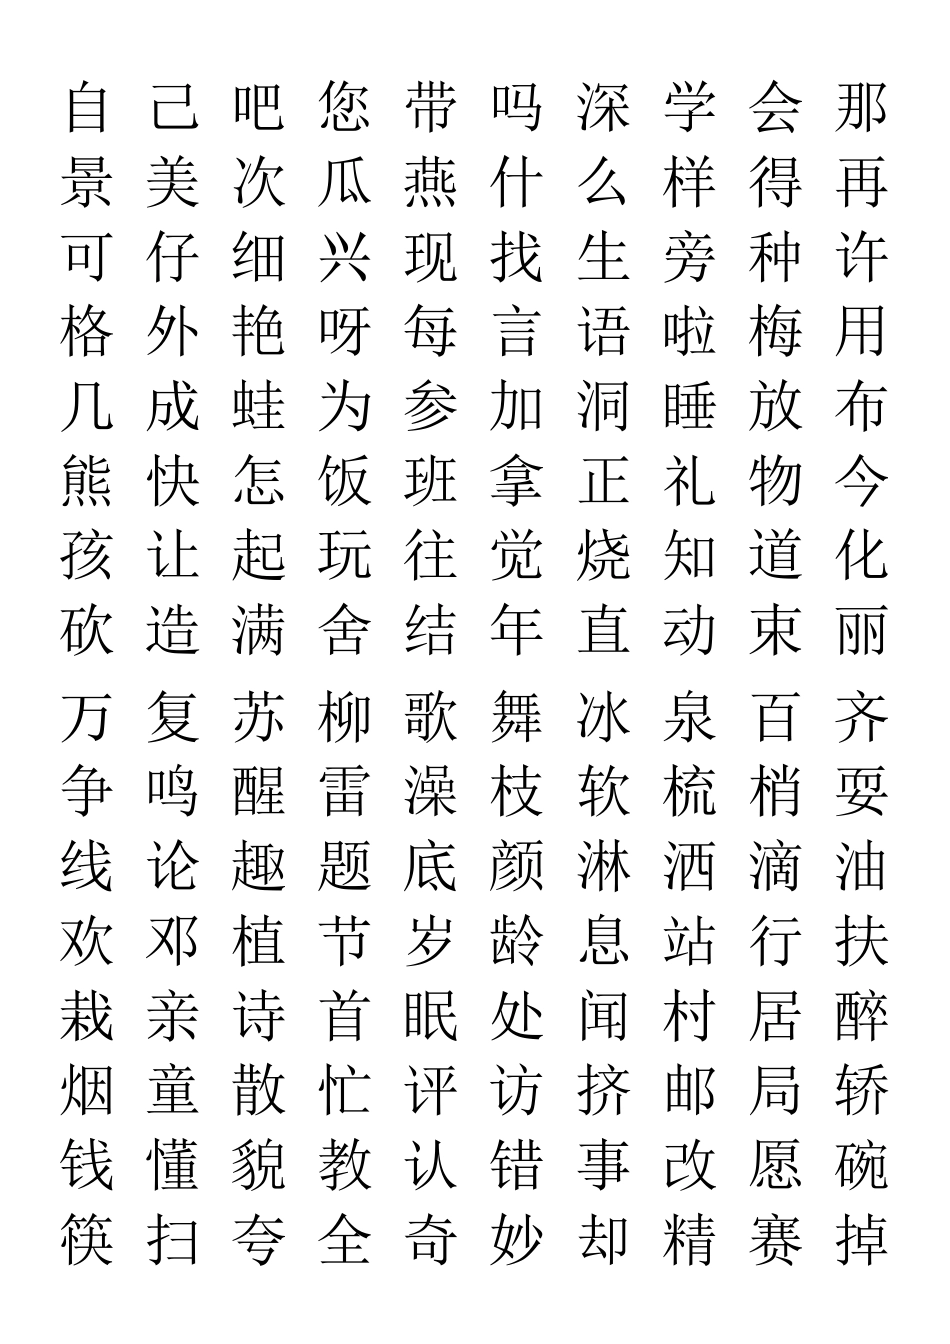 自 己 吧 您 带 吗 深 学 会 那
景 美 次 瓜 燕 什 么 样 得 再
可 仔 细 兴 现 找 生 旁 种 许
格 外 艳 呀 每 言 语 啦 梅 用
几 成 蛙 为 参 加 洞 睡 放 布
熊 快 怎 饭 班 拿 正 礼 物 今
孩 让 起 玩 往 觉 烧 知 道 化
砍 造 满 舍 结 年 直 动 束 丽
万 复 苏 柳 歌 舞 冰 泉 百 齐
争 鸣 醒 雷 澡 枝 软 梳 梢 耍
线 论 趣 题 底 颜 淋 洒 滴 油
欢 邓 植 节 岁 龄 息 站 行 扶
栽 亲 诗 首 眠 处 闻 村 居 醉
烟 童 散 忙 评 访 挤 邮 局 轿
钱 懂 貌 教 认 错 事 改 愿 碗
筷 扫 夸 全 奇 妙 却 精 赛 掉